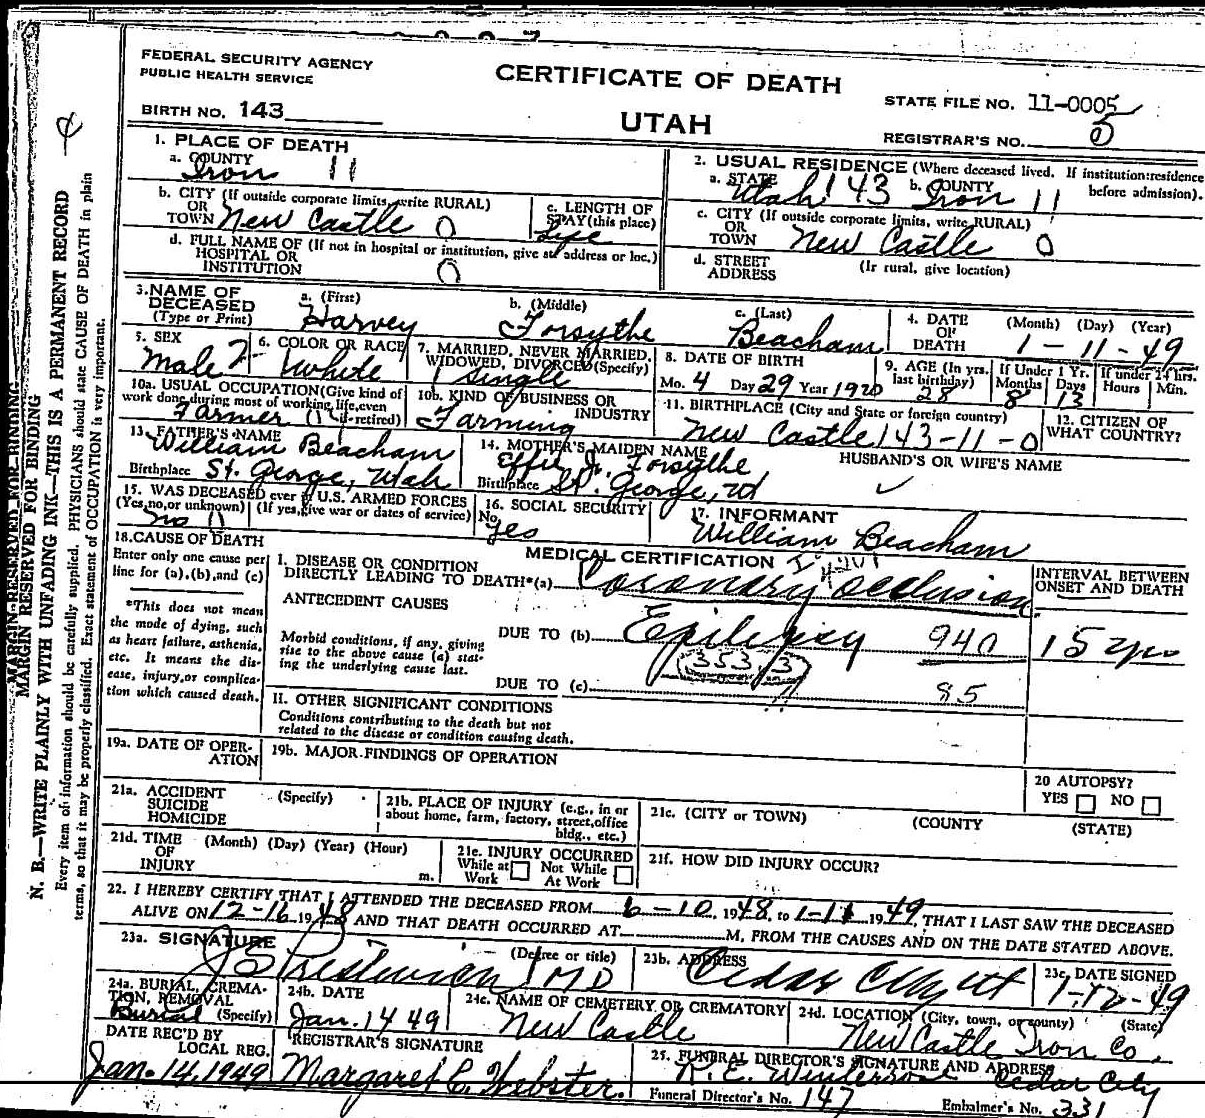 FEDERAL SECURITY AGENCY
PUBLIC HEALTH SERVICE
CERTIFICATE OF DEATH
STATE FILE NO. 11-0005
BIRTH NO. 143
UTAH
REGISTRAR'S NO. 5
1. PLACE OF DEATH
a. COUNTY
Iron 11
b. CITY (If outside corporate limits, write RURAL)
OR
TOWN New Castle 0
c. LENGTH OF
STAY (this place)
Life
d. FULL NAME OF (If not in hospital or institution, give st. address or loc.)
HOSPITAL OR
INSTITUTION 0
2. USUAL RESIDENCE (Where deceased lived. If institution:residence
before admission).
a. STATE b. COUNTY
Utah 143 Iron 11
c. CITY (If outside corporate limits, write RURAL)
OR
TOWN New Castle 0
d. STREET (Ir rural, give location)
ADDRESS
3.NAME OF
DECEASED
(Type or Print)
a. (First) b. (Middle) c. (Last)
Harvey Forsythe Beacham
4. DATE (Month) (Day) (Year)
OF
DEATH 1-11-49
5. SEX
Male
6. COLOR OR RACE
White
7. MARRIED, NEVER MARRIED,
WIDOWED, DIVORCED (Specify)
1 single
8. DATE OF BIRTH
Mo. 4 Day 29 Year 1920
9. AGE (In yrs.
last birthday)
28
If Under 1 Yr.
Months Days
8 13
If under 24 hrs.
Hours Min.
10a. USUAL OCCUPATION(Give kind of
work done during most of working life, even
if retired)
Farmer
10b. KIND OF BUSINESS OR
INDUSTRY
Farming
11. BIRTHPLACE (City and State or foreign country)
New Castle 143-11-0
12. CITIZEN OF
WHAT COUNTRY?
13. FATHER'S NAME
William Beacham
Birthplace St. George, Utah
14. MOTHER'S MAIDEN NAME
Effie Forsythe
Birthplace St. George, Ut
HUSBAND'S OR WIFE'S NAME
15. WAS DECEASED ever in U.S. ARMED FORCES
(Yes,no,or unknown) (If yes,give war or dates of service)
no
16. SOCIAL SECURITY
No. yes
17. INFORMANT
William Beacham
18.CAUSE OF DEATH
Enter only one cause per
line for (a),(b),and (c)
*This does not mean
the mode of dying, such
as heart failure, asthenia,
etc. It means the dis-
ease, injury,or complica-
tion which caused death.
MEDICAL CERTIFICATION
I. DISEASE OR CONDITION
DIRECTLY LEADING TO DEATH*(a) Coronary occlusion
INTERVAL BETWEEN
ONSET AND DEATH
ANTECEDENT CAUSES
Morbid conditions, if any, giving
rise to the above cause (a) stat-
ing the underlying cause last.
DUE TO (b) Epilepsy 940 15 yrs
353.3
DUE TO (c) 85
II. OTHER SIGNIFICANT CONDITIONS
Conditions contributing to the death but not
related to the disease or condition causing death.
19a. DATE OF OPER-
ATION
19b. MAJOR FINDINGS OF OPERATION
20 AUTOPSY?
YES NO
21a. ACCIDENT (Specify)
SUICIDE
HOMICIDE
21b. PLACE OF INJURY (e.g., in or
about home, farm, factory, street,office
bldg., etc.)
21c. (CITY or TOWN) (COUNTY) (STATE)
21d. TIME (Month) (Day) (Year) (Hour)
OF
INJURY m.
21e. INJURY OCCURRED
While at Not While
Work At Work
21f. HOW DID INJURY OCCUR?
22. I HEREBY CERTIFY THAT I ATTENDED THE DECEASED FROM 6-10, 1948, to 1-11 1949, THAT I LAST SAW THE DECEASED
ALIVE ON 12-16 1948 AND THAT DEATH OCCURRED AT M, FROM THE CAUSES AND ON THE DATE STATED ABOVE.
23a. SIGNATURE (Degree or title)
MD
23b. ADDRESS
Cedar City Ut
23c. DATE SIGNED
1-12-49
24a. BURIAL, CREMA-
TION, REMOVAL
(Specify)
Burial
24b. DATE
Jan. 14 49
24c. NAME OF CEMETERY OR CREMATORY
New Castle
24d. LOCATION (City, town, or county) (State)
New Castle Iron Co.
DATE REC'D BY
LOCAL REG.
Jan. 14, 1949
REGISTRAR'S SIGNATURE
Margaret C. Webster.
25. FUNERAL DIRECTOR'S SIGNATURE AND ADDRESS
R. E. Cedar City
Funeral Director's No. 147 Embalmer's No. 331
MARGIN RESERVED FOR BINDING
N. B.—WRITE PLAINLY WITH UNFADING INK—THIS IS A PERMANENT RECORD
Every item of information should be carefully supplied. PHYSICIANS should state CAUSE OF DEATH in plain
terms, so that it may be properly classified. Exact statement of OCCUPATION is very important.